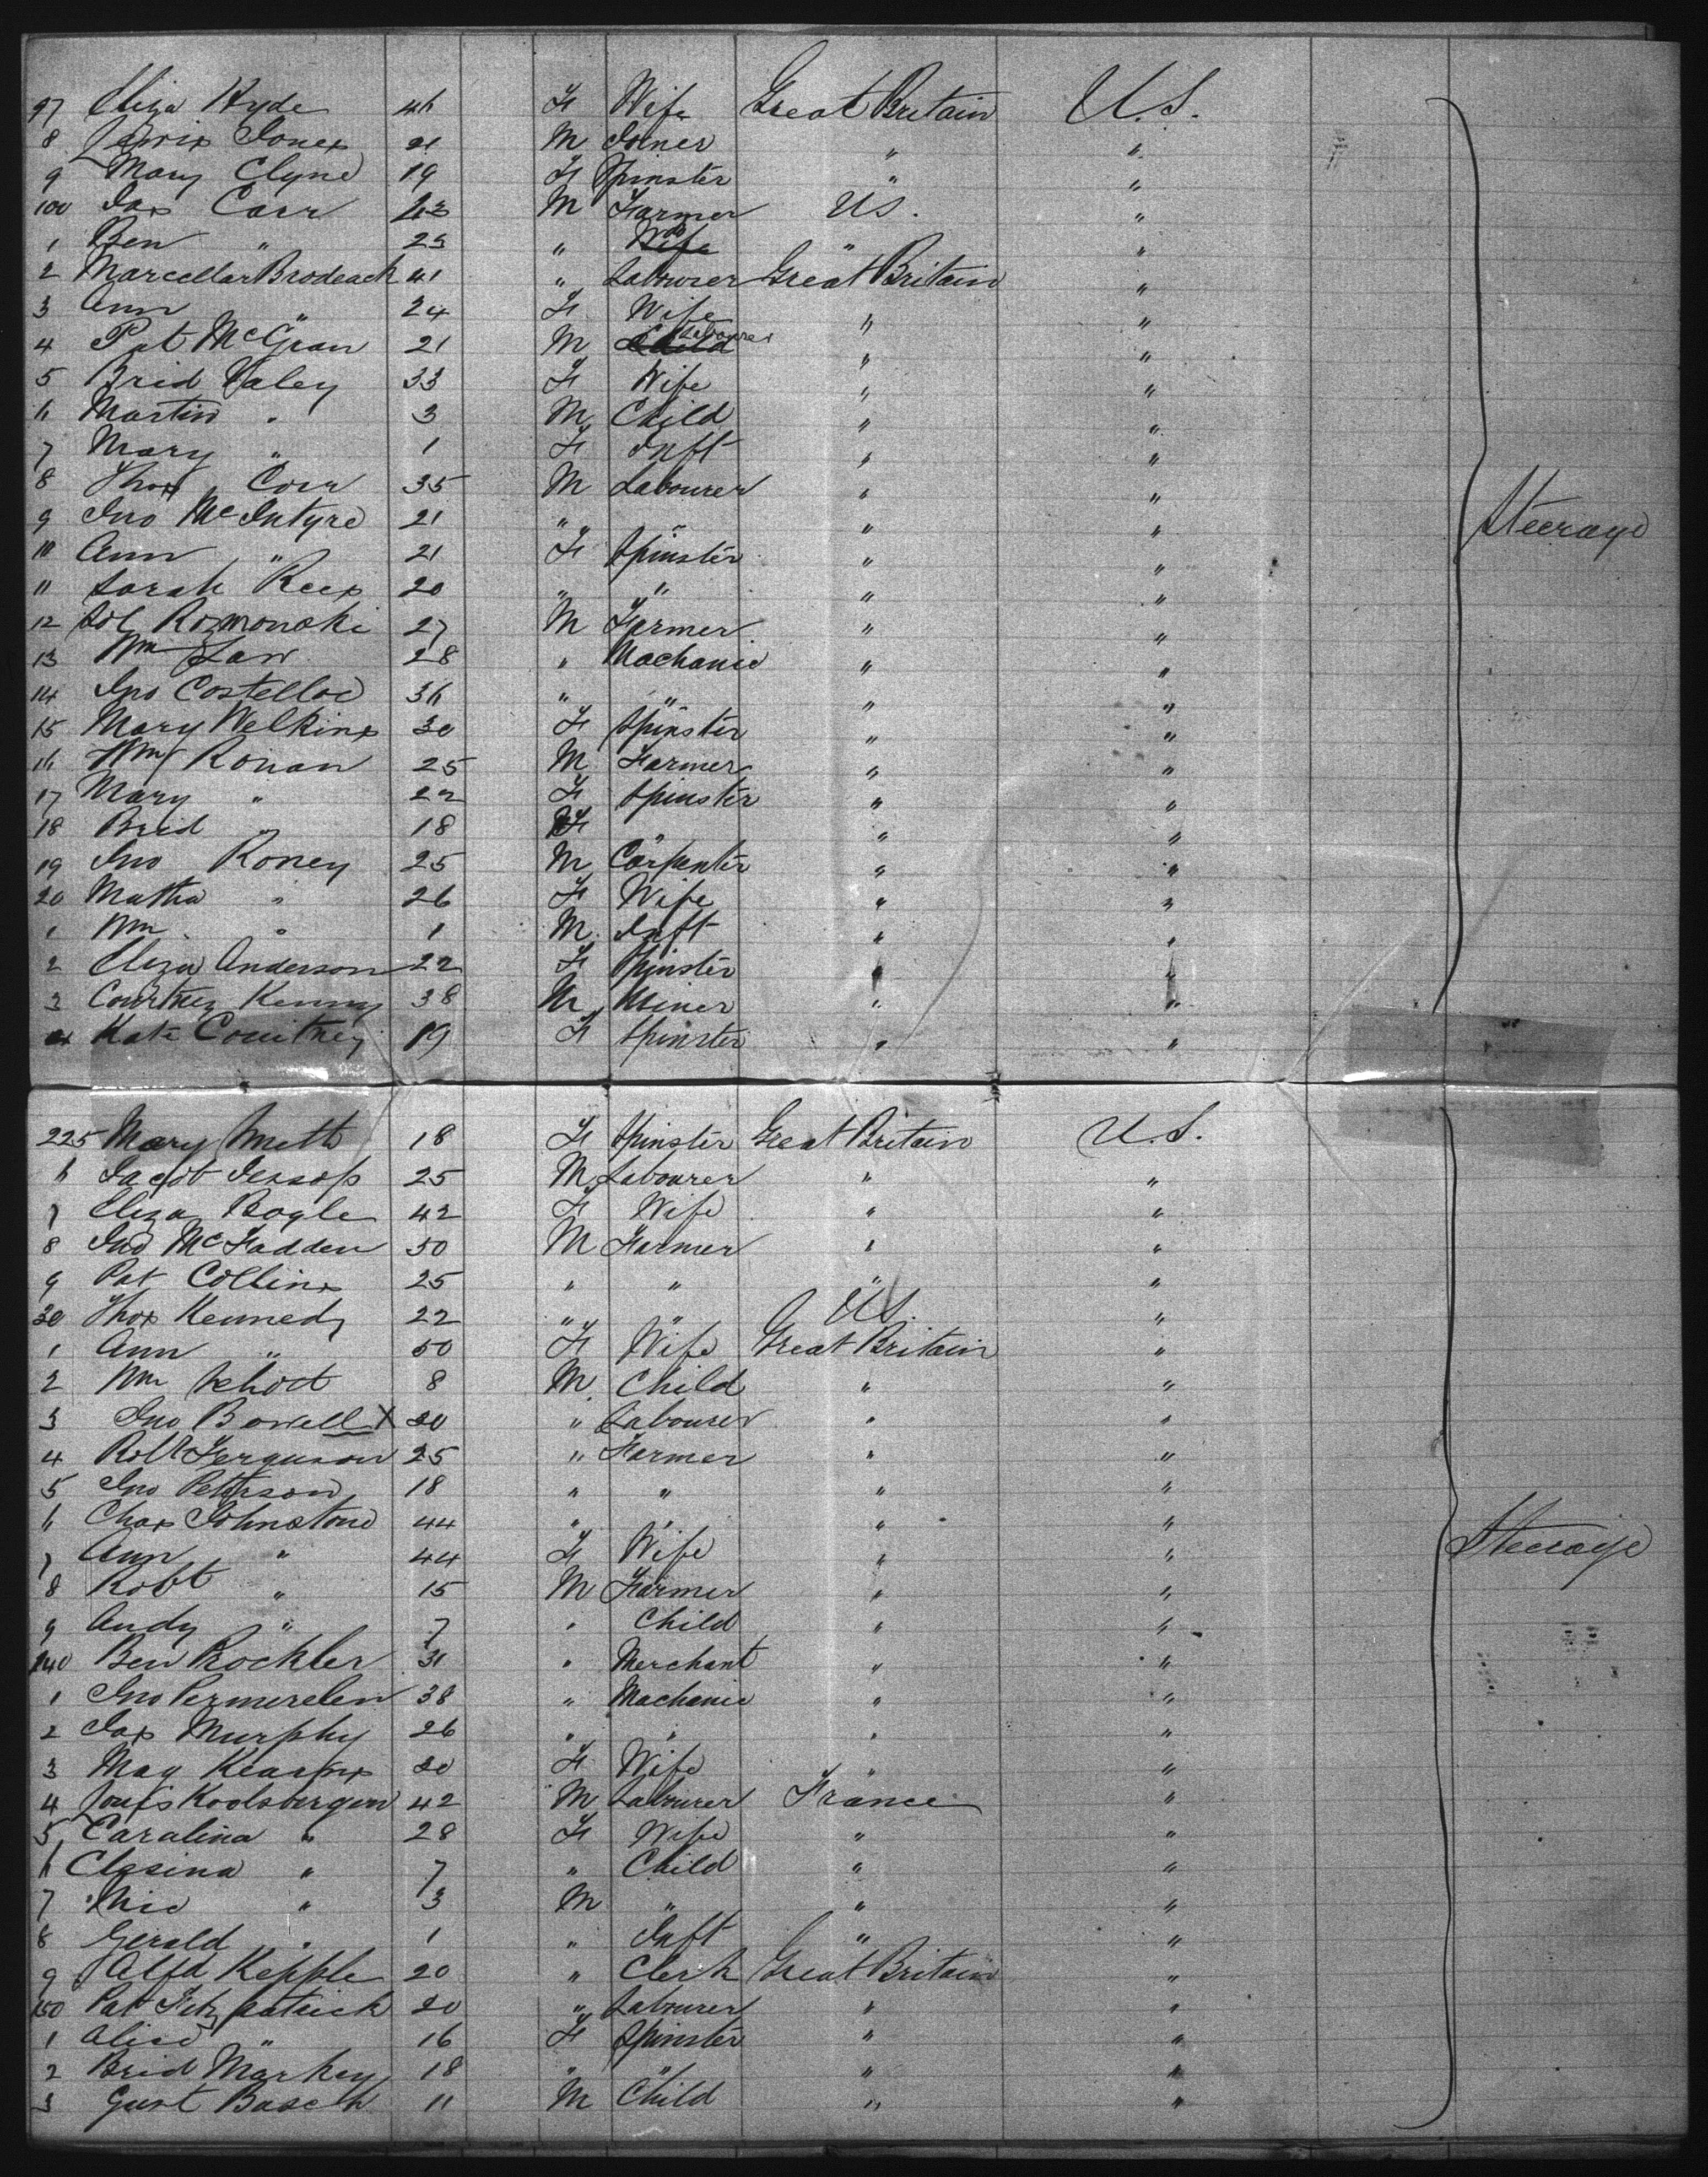 97 Eliza Hyde 46 F Wife Great Britain U.S.
8 Lewis Jones 21 M Joiner " "
9 Mary Clyne 19 F Spinster " "
100 Jas Carr 23 M Farmer US. "
1 Ben " 25 " Wife " "
2 Marcellar Brodeack 41 " Labourer Great Britain "
3 Ann " 24 F Wife " "
4 Pat McGran 21 M Child Labourer " "
5 Brid Haley 33 F Wife " "
6 Martin " 3 M Child " "
7 Mary " 1 F Inft " "
8 Thos Corr 35 M Labourer " "
9 Jno McIntyre 21 " " " " Steerage
10 Ann " 21 F Spinster " "
11 Sarah Rees 20 " " " "
12 Sol Rozmonski 27 M Farmer " "
13 Wm Law 28 " Machanic " "
14 Jno Costelloe 36 " " " "
15 Mary Welkins 30 F Spinster " "
16 Wm Ronan 25 M Farmer " "
17 Mary " 22 F Spinster " "
18 Brid " 18 F " " "
19 Jno Roney 25 M Carpenter " "
20 Matha " 26 F Wife " "
1 Wm " 1 M Inft " "
2 Eliza Anderson 22 F Spinster " "
3 Courtney Kenny 38 M Miner " "
4 Kate Courtney 19 F Spinster " "
225 Mary Smith 18 F Spinster Great Britain U.S.
6 Jacob Jessop 25 M Labourer " "
7 Eliza Bogle 42 F Wife " "
8 Jno McFadden 50 M Farmer " "
9 Pat Collins 25 " " " "
30 Thos Kennedy 22 " " US. "
1 Ann " 50 F Wife Great Britain "
2 Wm Schott 8 M Child " "
3 Jno Bowell X 20 " Labourer " "
4 Robt Ferguson 25 " Farmer " "
5 Jno Peterson 18 " " " "
6 Chas Johnstone 44 " " " "
7 Ann " 44 F Wife " " Steerage
8 Robt " 15 M Farmer " "
9 Andy " 7 " Child " "
140 Ben Rockler 31 " Merchant " "
1 Jno Permerelen 38 " Machanic " "
2 Jas Murphy 26 " " " "
3 May Kearns 20 F Wife " "
4 Louis Koolsbergen 42 M Labourer France "
5 Caralina " 28 F Wife " "
6 Clasina " 7 " Child " "
7 Mic " 3 M " " "
8 Gerald " 1 " Inft " "
9 Alfd Kepple 20 " Clerk Great Britain "
150 Pat Fitzpatrick 20 " Labourer " "
1 Alice " 16 F Spinster " "
2 Brid Markey 18 " " " "
3 Gust Basch 11 M Child " "